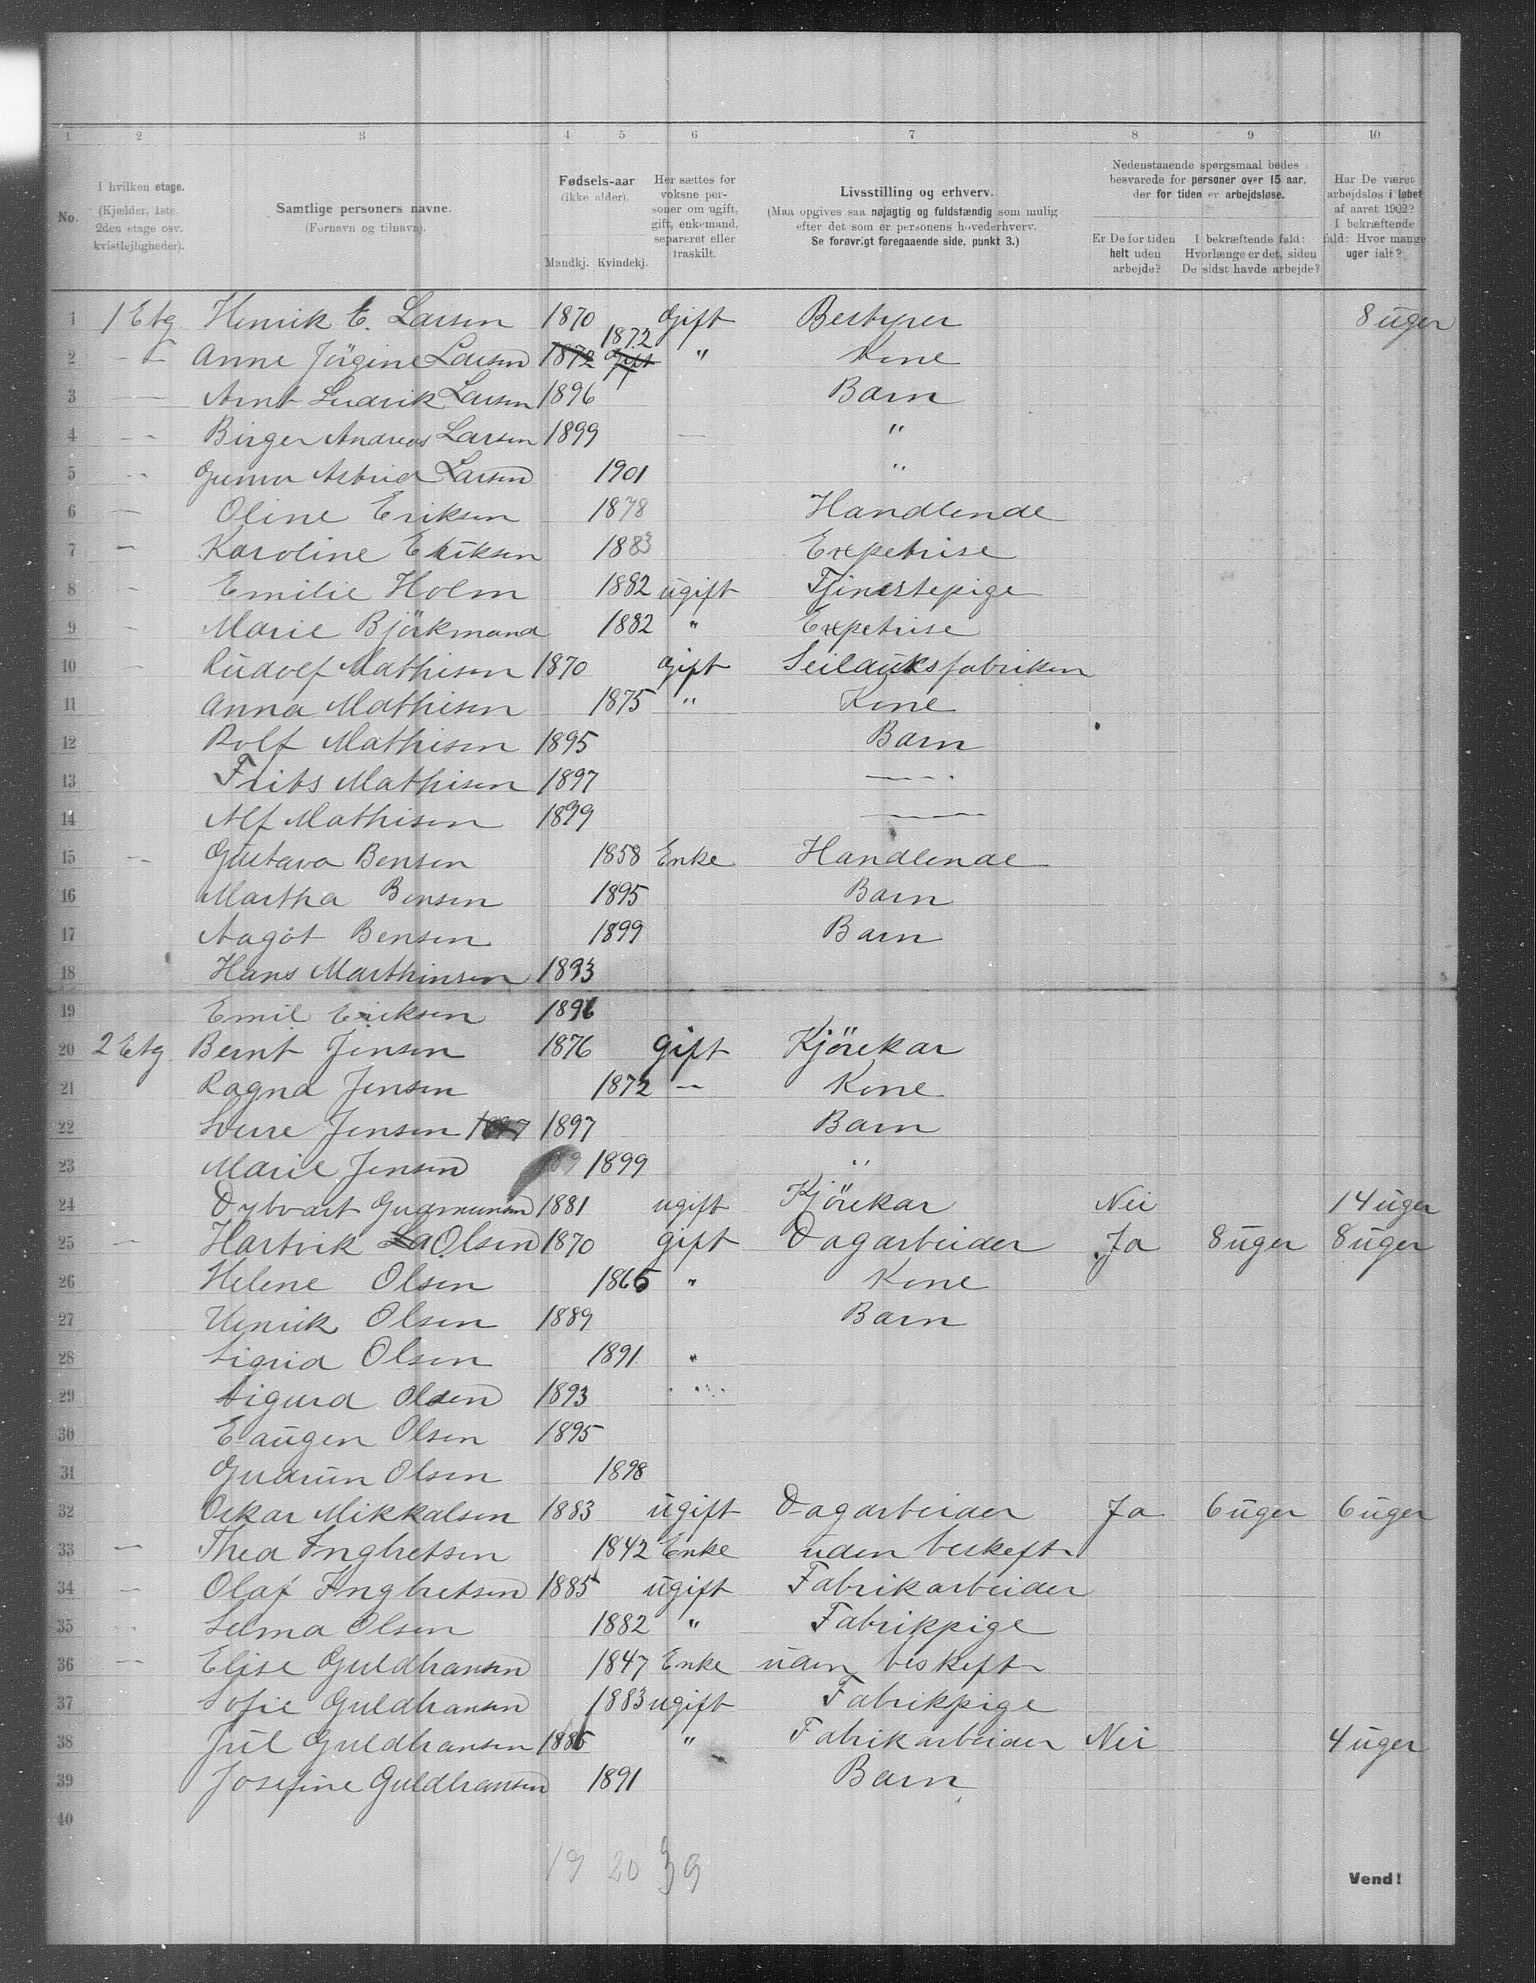 1 2 3 4 5 6 7 8 9 10
No.
I hvilken etage.
(Kjælder, 1ste.
2den etage osv.
kvistlejligheder).
Samtlige personers navne.
(Fornavn og tilnavn).
Fødsels-aar
(ikke alder).
Mandkj. Kvindekj.
Her sættes for
voksne per-
soner om ugift,
gift, enkemand,
separeret eller
fraskilt.
Livsstilling og erhverv.
(Maa opgives saa nøjagtig og fuldstændig som mulig
efter det som er personens hovederhverv.
Se forøvrigt foregaaende side, punkt 3.)
Nedenstaaende spørgsmaal bedes
besvarede for personer over 15 aar,
der for tiden er arbejdsløse.
Er De for tiden
helt uden
arbejde?
I bekræftende fald:
Hvorlænge er det, siden
De sidst havde arbejde?
Har De været
arbejdsløs i løbet
af aaret 1902?
I bekræftende
fald: Hvor mange
uger ialt?
1 1 Etg Henrik E. Larsen 1870 Gift Bestyrer 8 uger
2 - " - Anne Jörgine Larsen 1872 Gift 1872 " Kone
3 — Arnt Ludvik Larsen 1896 Barn
4 -- Birger Andreas Larsen 1899 — "
5 -- Gunvor Astrid Larsen 1901 "
6 — Oline Eriksen 1878 Handlende
7 — Karoline Eriksen 1883 Expetrise
8 - Emilie Holm 1882 ugift Tjinestepige
9 - Marie Björkmand 1882 " Expetrise
10 - Rudolf Mathisen 1870 Gift Seilduksfabriken
11 Anna Mathisen 1875 " Kone
12 Rolf Mathisen 1895 Barn
13 Frits Mathisen 1897 —
14 Alf Mathisen 1899 —
15 -- Gustava Bensen 1858 Enke Handlende
16 Martha Bensen 1895 Barn
17 Aagot Bensen 1899 Barn
18 Hans Marthinsen 1893
19 Emil Eriksen 1896
20 2 Etg. Bernt Jensen 1876 gift Kjörekar
21 Ragna Jensen 1872 — Kone
22 Sverre Jensen 1897 1897 Barn
23 Marie Jensen 1899 "
24 Dybvart Gudmunsen 1881 ugift Kjörekar Nei 14 uger
25 — Hartvik Olsen 1870 gift Dagarbeider Ja 8 uger 8 uger
26 Helene Olsen 1865 " Kone
27 Henrik Olsen 1889 Barn
28 Sigrid Olsen 1891 "
29 Sigurd Olsen 1893
30 Eaugen Olsen 1895
31 Gudrun Olsen 1898
32 Oskar Mikkalsen 1883 ugift Dagarbeider Ja 6 uger 6 uger
33 — Thea Ingbretsen 1842 Enke uden beskeft
34 — Olaf Ingbretsen 1885 ugift Fabrikarbeider
35 -- Selma Olsen 1882 " Fabrikpige
36 — Elise Guldhansen 1847 Enke uden beskeft
37 Sofie Guldhansen 1883 ugift Fabrikpige
38 Jul Guldhansen 1885 " Fabrikarbeider Nei 4 uger
39 Josefine Guldhansen 1891 Barn
40
19 20 39
Vend!